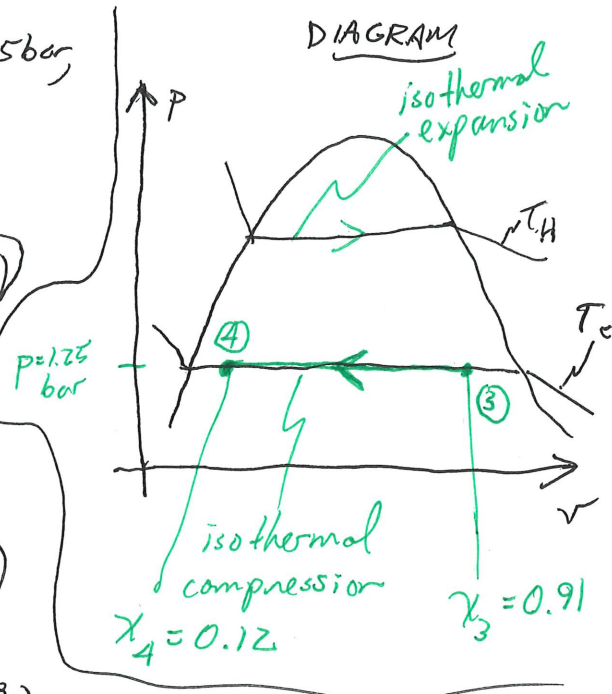 5bar,
DIAGRAM
isothermal
expansion
P
T_H
T_c
p=1.25
bar
④
③
v
isothermal
compression
x_4 = 0.12
x_3 = 0.91